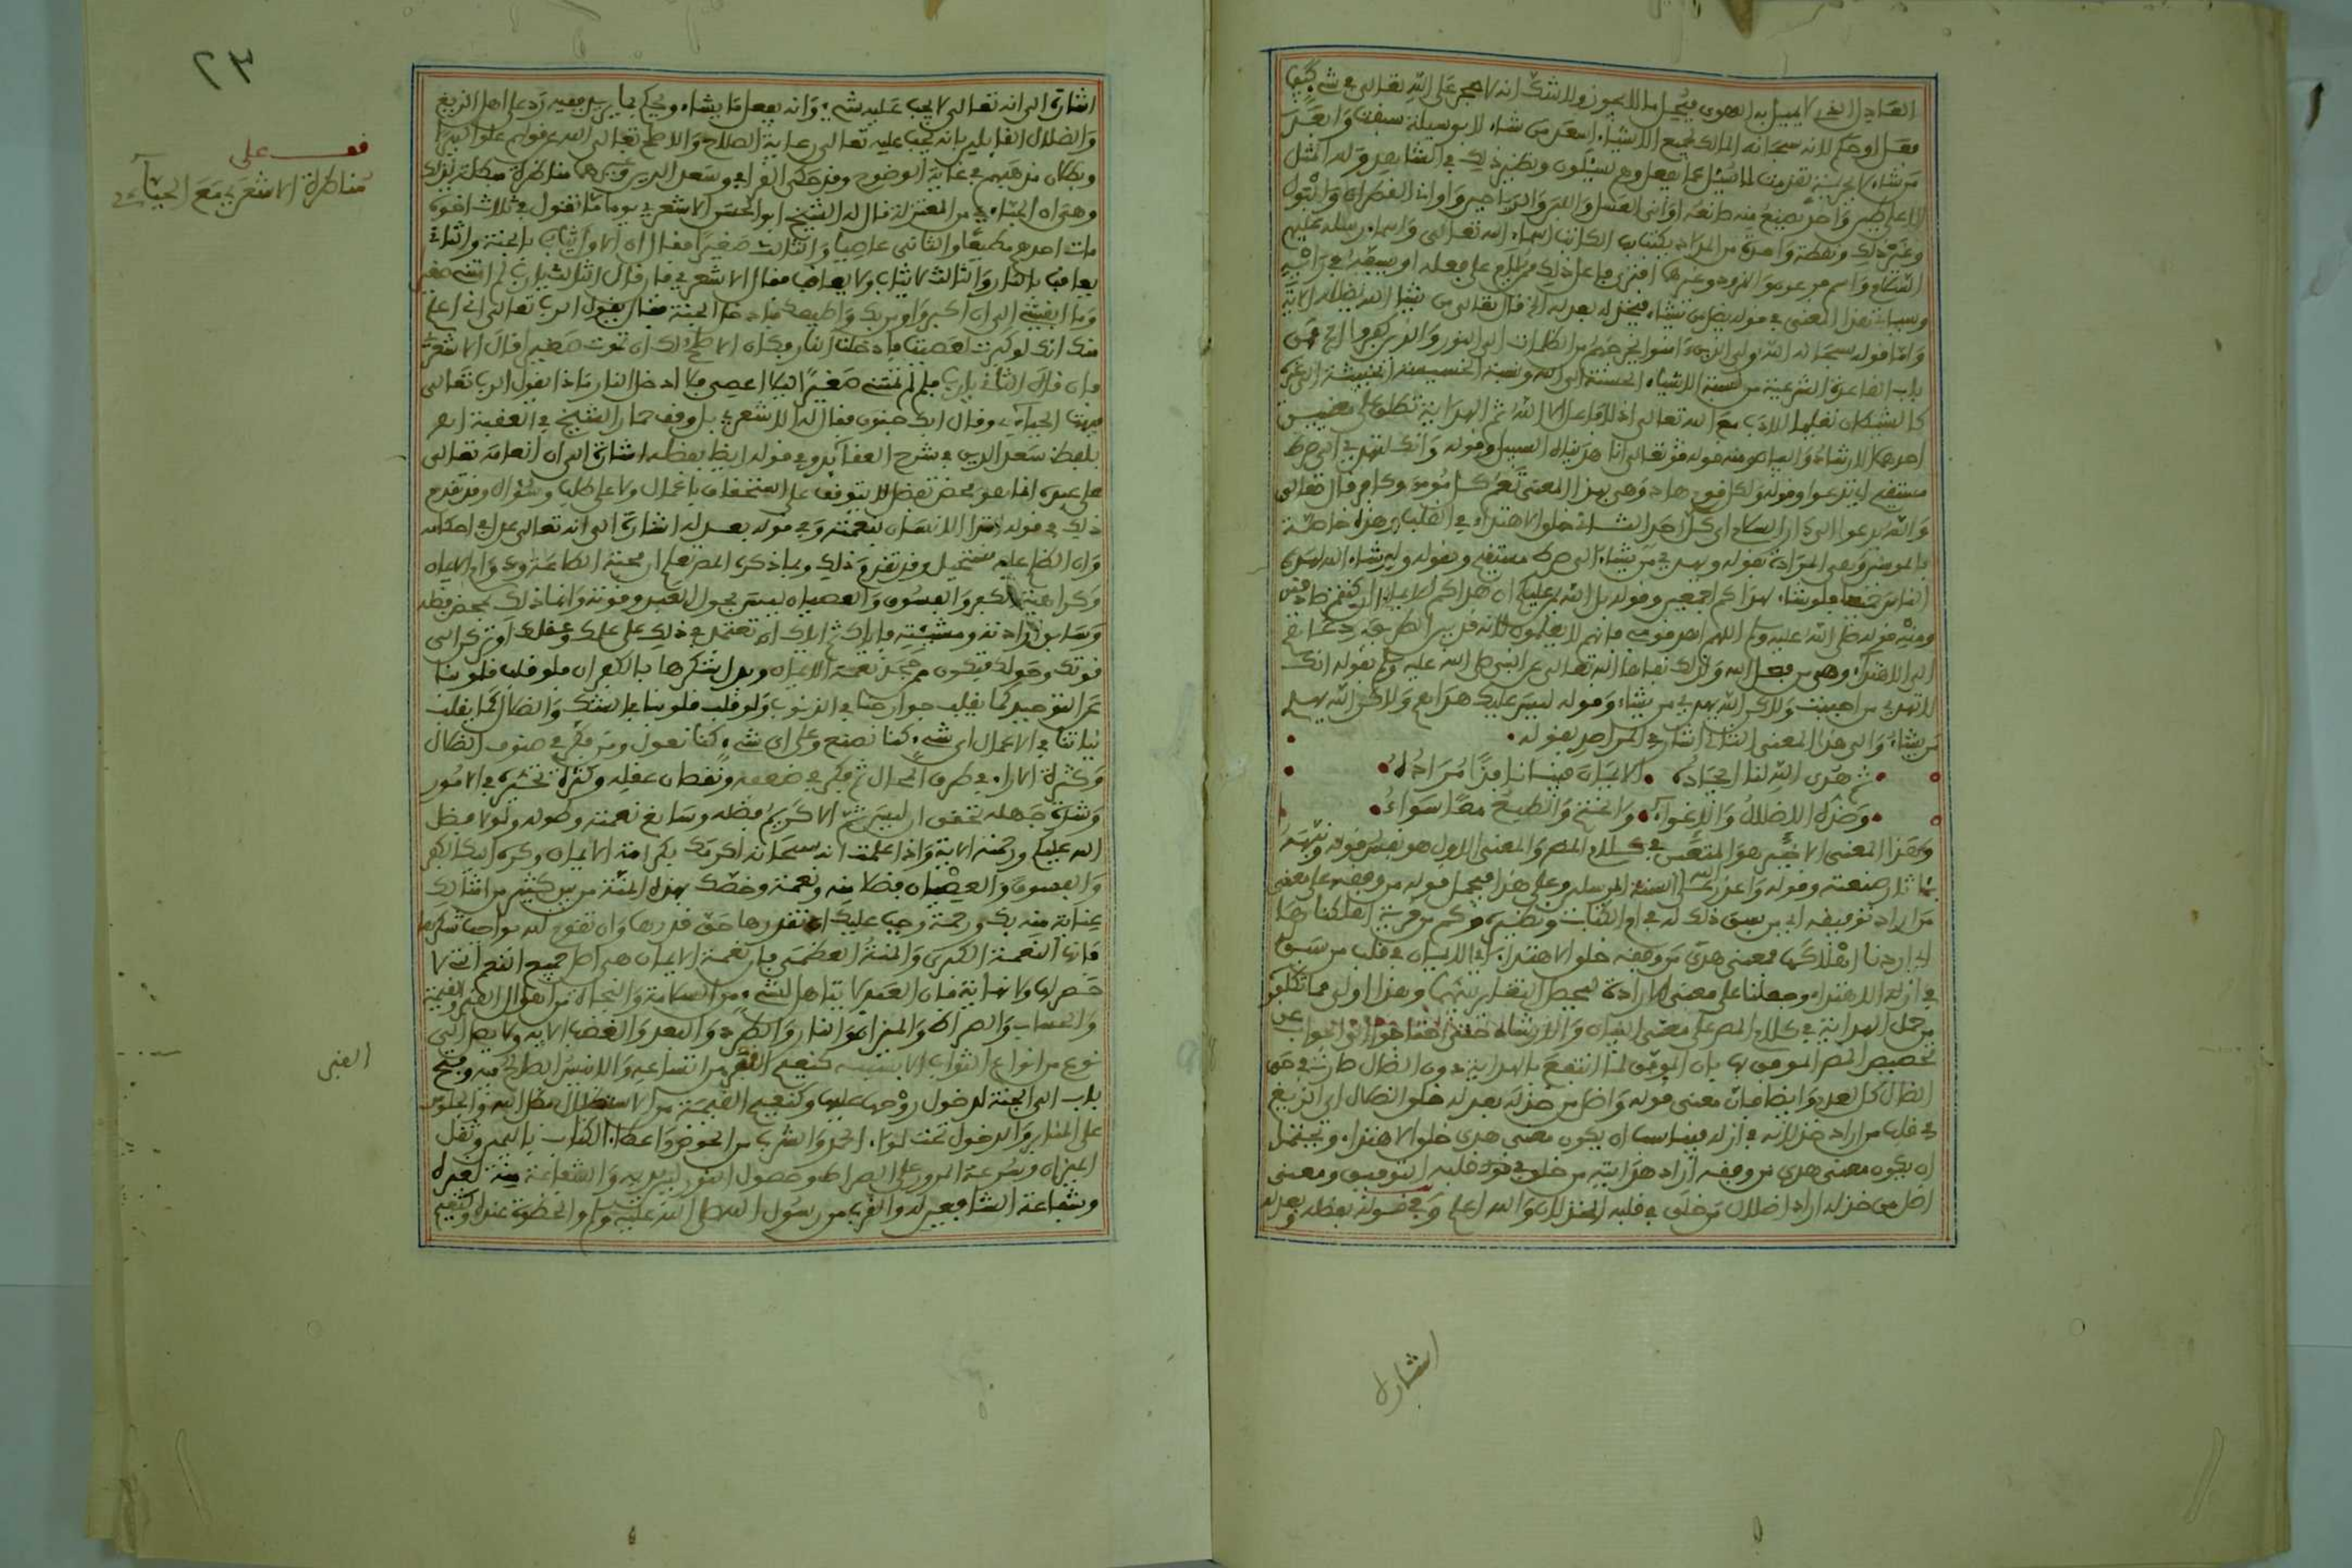 العادل الذي لا يميل به الهوى فيحل ما لا يجوز ولا شك انه لا حجر على الله تعالى في شيء كيفما
فعل او حكم لانه سبحانه المالك لجميع الاشياء اسعد من شاء لا بوسيلة سبقت وابعد
من شاء لا لجريمة تقدمت لا يسئل عما يفعل وهم يسئلون ونظير ذلك في الشاهد وله المثل
الاعلى طين واحد يصنع منه صانعه اواني العسل واللبن والرياحين واواني القطران والبول
وغير ذلك ونقطة واحدة من المداد يكتب بها الكاتب اسماء الله تعالى واسماء رسله عليهم
السلام واسم فرعون والنمرود وغيرها افترى فاعل ذلك يلام على فعله او يسفه في رأيه
وسياتي هذا المعنى في قوله يضل من يشاء فيخذله بعدله الخ قال تعالى من يشا الله يضلله الآية
واما قوله سبحانه الله ولي الذين ءامنوا يخرجهم من الظلمات الى النور والذين كفروا الخ فمن
باب القاعدة الشرعية من نسبة الاشياء الحسنة الى الله ونسبة الخسيسة الخبيثة الى غيره
كالشيطان تعليما للادب مع الله تعالى اذ لا فاعل الا الله ثم الهداية تطلق على معنيين
احدهما الارشاد والبيان ومنه قوله تعالى انا هديناه السبيل وقوله وانك لتهدي الى صراط
مستقيم اي تدعوا وقوله ولكل قوم هاد وهي بهذا المعنى تعم كل مومن وكافر قال تعالى
والله يدعوا الى دار السلام اي كل احد الثاني خلق الاهتداء في القلب وهذه خاصة
بالمومن وهي المرادة بقوله ويهدي من يشاء الى صراط مستقيم وبقوله ولو يشاء الله لهدى
الناس جميعا ولو شاء لهداكم اجمعين وقوله بل الله يمن عليكم ان هداكم للايمان ان كنتم صادقين
ومنه قوله صلى الله عليه وسلم اللهم اهد قومي فانهم لا يعلمون لانه قد بين الطريق ودعا
الى الاهتداء وهي من فعل الله ولذلك نفاها الله تعالى عن النبي صلى الله عليه وسلم بقوله انك
لا تهدي من احببت ولكن الله يهدي من يشاء وقوله ليس عليك هداهم ولكن الله يهدي
من يشاء والى هذا المعنى الثاني اشار في المراصد بقوله
ثم هدى الله لنا ايجاده الايمان فينا نافذا مراده
وضده الاضلال والاغواء والختم والطبع معا سواء
وهذا المعنى الاخير هو المتعين في كلام المص والمعنى الاول هو نفس قوله ونبهه
بآثار صنعته وقوله واعذر على السنة المرسلين وعلى هذا فيحمل قوله من وفقه على معنى
من اراد توفيقه اي من سبق ذلك له في ام الكتاب ونظيره وكم من قرية اهلكناها
اي اردنا اهلاكها فمعنى هدى من وفقه خلق الاهتداء اي الايمان في قلب من سبق
في ازله الاهتداء وجعلنا على معنى الارادة ليحصل التغاير بينهما وهذا اولى مما تكلفوا
من حمل الهداية في كلام المص على معنى البيان والارشاد حتى احتاجوا الى الجواب عن
تخصيص المص الموفق بها بان الموفق لما انتفع بالهداية دون الضال صارت في حق
الضال كالعدم وايضا فان معنى قوله واضل من خذله بعدله خلق الضلال اي الزيغ
في قلب من اراد خذلانه في ازله فيناسب ان يكون معنى هدى خلق الاهتداء ويحتمل
ان يكون معنى هدى من وفقه اراد هدايته من خلق في قلبه التوفيق ومعنى
اضل من خذله اراد اضلال من خلق في قلبه الخذلان والله اعلم وفي قوله بفضله وبعدله
اشارة
٢٣
اشارة الى انه تعالى لا يجب عليه شيء وانه يفعل ما يشاء ويحكم بما يريد ففيه رد على اهل الزيغ
والضلال القايلين بانه يجب عليه تعالى رعاية الصلاح والاصلح تعالى الله عن قولهم علوا كبيرا
وبطلان مذهبهم في غاية الوضوح وقد حكى القرافي وسعد الدين وغيرهما مناظرة مبطلة لذلك
وهي ان الجباءي من المعتزلة قال له الشيخ ابو الحسن الاشعري يوما ما تقول في ثلاث اخوة
مات احدهم مطيعا والثاني عاصيا والثالث صغيرا فقال ان الاول يثاب بالجنة والثاني
يعاقب بالنار والثالث لا يثاب ولا يعاقب فقال الاشعري فان قال الثالث يارب لم امتني صغيرا
وما ابقيتني الى ان اكبر واومن بك واطيعك فادخل الجنة فقال يقول الرب تعالى اني اعلم
منك انك لو كبرت لعصيت فادخلت النار فكان الاصلح لك ان تموت صغيرا قال الاشعري
فان قال الثاني يارب فلم لم تمتني صغيرا ليلا اعصي فلا ادخل النار ماذا يقول الرب تعالى
فبهت الجباءي وقال ابك جنون فقال له الاشعري بل وقف حمار الشيخ في العقبة انظر
بلفظ سعد الدين في شرح العقائد وفي قوله ايضا بفضله اشارة الى ان انعامه تعالى
على عبده انما هو محض تفضل لا يتوقف على استحقاق باعمال ولا على طلب وسؤال وقد تقدم
ذلك في قوله ابتدا الانسان بنعمته وفي قوله بعدله اشارة الى انه تعالى عدل في احكامه
وان الظلم عليه مستحيل وقد تقدم ذلك وبما ذكره المص تعلم ان محبة الطاعة ودوام الايمان
وكراهية الكفر والفسوق والعصيان ليس بحول العبد وقوته وانما ذلك بمحض فضله
وسابق ارادته ومشيئته فاياك ثم اياك ان تعتمد في ذلك على عملك وعقلك او تركن الى
قوتك وحولك فتكون ممن جحد نعمة الايمان وبدل شكرها بالكفران فلو قلب قلوبنا
عن التوحيد كما يقلب جوارحنا في الذنوب ولو قلب قلوبنا في الشك والضلال كما يقلب
نياتنا في الاعمال اي شيء كنا نصنع وعلى اي شيء كنا نعول ومن فكر في صنوف الضلال
وكثرة الاراء في طرق المحال ثم فكر في ضعفه ونقصان عقله وكثرة تحيره في الامور
وشدة جهله تحقق ان ليس ثم الا كريم فضله وسابغ نعمته وطوله ولولا فضل
الله عليكم ورحمته الاية واذا علمت انه سبحانه اكرمك بكرامة الايمان وكره اليك الكفر
والفسوق والعصيان فضلا منه ونعمة وخصك بهذه المنة من بين كثير من امثالك
عناية منه بك ورحمة وجب عليك ان تقدرها حق قدرها وان تقوم لله بواجب شكرها
فانها النعمة الكبرى والمنة العظمى فان نعمة الايمان هي اصل جميع النعم التي لا
حصر لها ولا نهاية فان العبد لا يتاهل لشيء من السلامة والنجاة من اهوال القبر والقيمة
والحساب والصراط والميزان والنار والطرد والبعد والغضب الا به ولا يصل الى
نوع من انواع الثواب الا بسببه كنعيم القبر من اتساعه والانيس الصالح فيه وفتح
باب الى الجنة لدخول روحها عليه وكنعيم القيمة من الاستظلال بظل الله والجلوس
على المنابر والدخول تحت لواء الحمد والشرب من الحوض واعطاء الكتاب باليمين وثقل
الميزان وسرعة المرور على الصراط وحصول النور بين يديه والشفاعة منه لغيره
وشفاعة الشافعين له والقرب من رسول الله صلى الله عليه وسلم والحظوة عنده وكنعيم
قف على
مناظرة الاشعري مع الجباءي
القبر